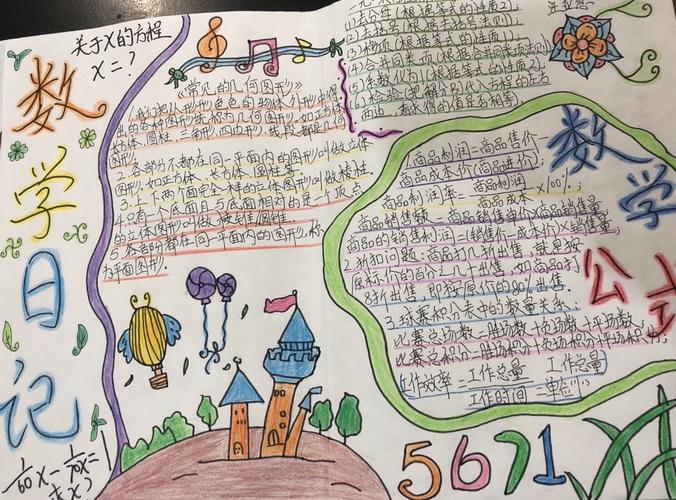 数学日记
关于X的方程
X=?
《常见的几何图形》
1.我们把从形形色色的物体外形中得
出的各种图形统称为几何图形。如正方体、长
方体、圆柱、三角形、四边形、线段都是几何
图形。
2.各部分不都在同一平面内的图形叫做立体
图形,如正方体、长方体、圆柱等。
3.上下两个面完全一样的立体图形叫做棱柱
4.只有一个底面且与底面相对的是一个顶点
的立体图形叫做
5.各部分都在同一平面内的图形,称
为平面图形。
(1)去分母(根据等式的性质2)
(2)去括号(根据去括号法则)
(3)移项(根据等式的性质1)
(4)合并同类项(根据合并同类项法则)
(5)系数化为1(根据等式的性质2)
(6)检验(把解分别代入方程的左右
两边,看求得的值是否相等)
数学公式
商品利润=商品售价-
商品成本价(商品进价)
商品利润率=商品利润/商品成本×100%
商品销售额=商品销售单价×商品销售量
商品的销售利润=(销售价-成本价)×销售量
2.折扣问题:商品打几折出售,就是按
原标价的百分之几十出售,如商品打
8折出售,即按原价的80%出售。
3.球赛积分表中的数量关系:
比赛总场数=胜场数+负场数+平场数
比赛总积分=胜场积分+负场积分+平场积分
工作效率=工作总量/工作时间
工作总量
单位1
1/60X-1/70X=1
求X?
5671